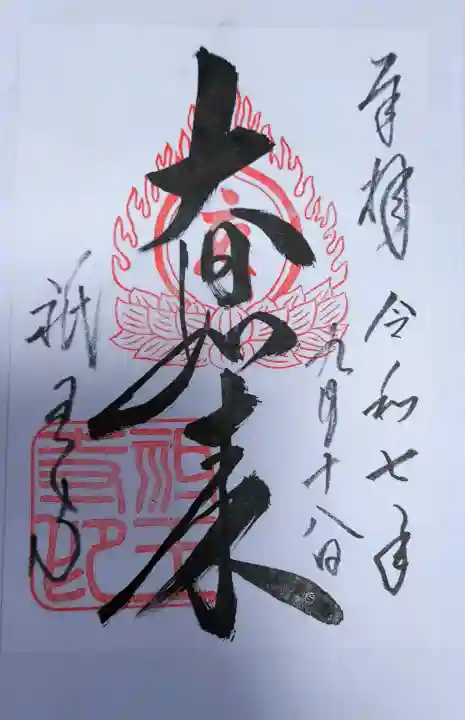 奉拝
令和七年
九月十八日
大日如来
祇王寺
祇王寺印